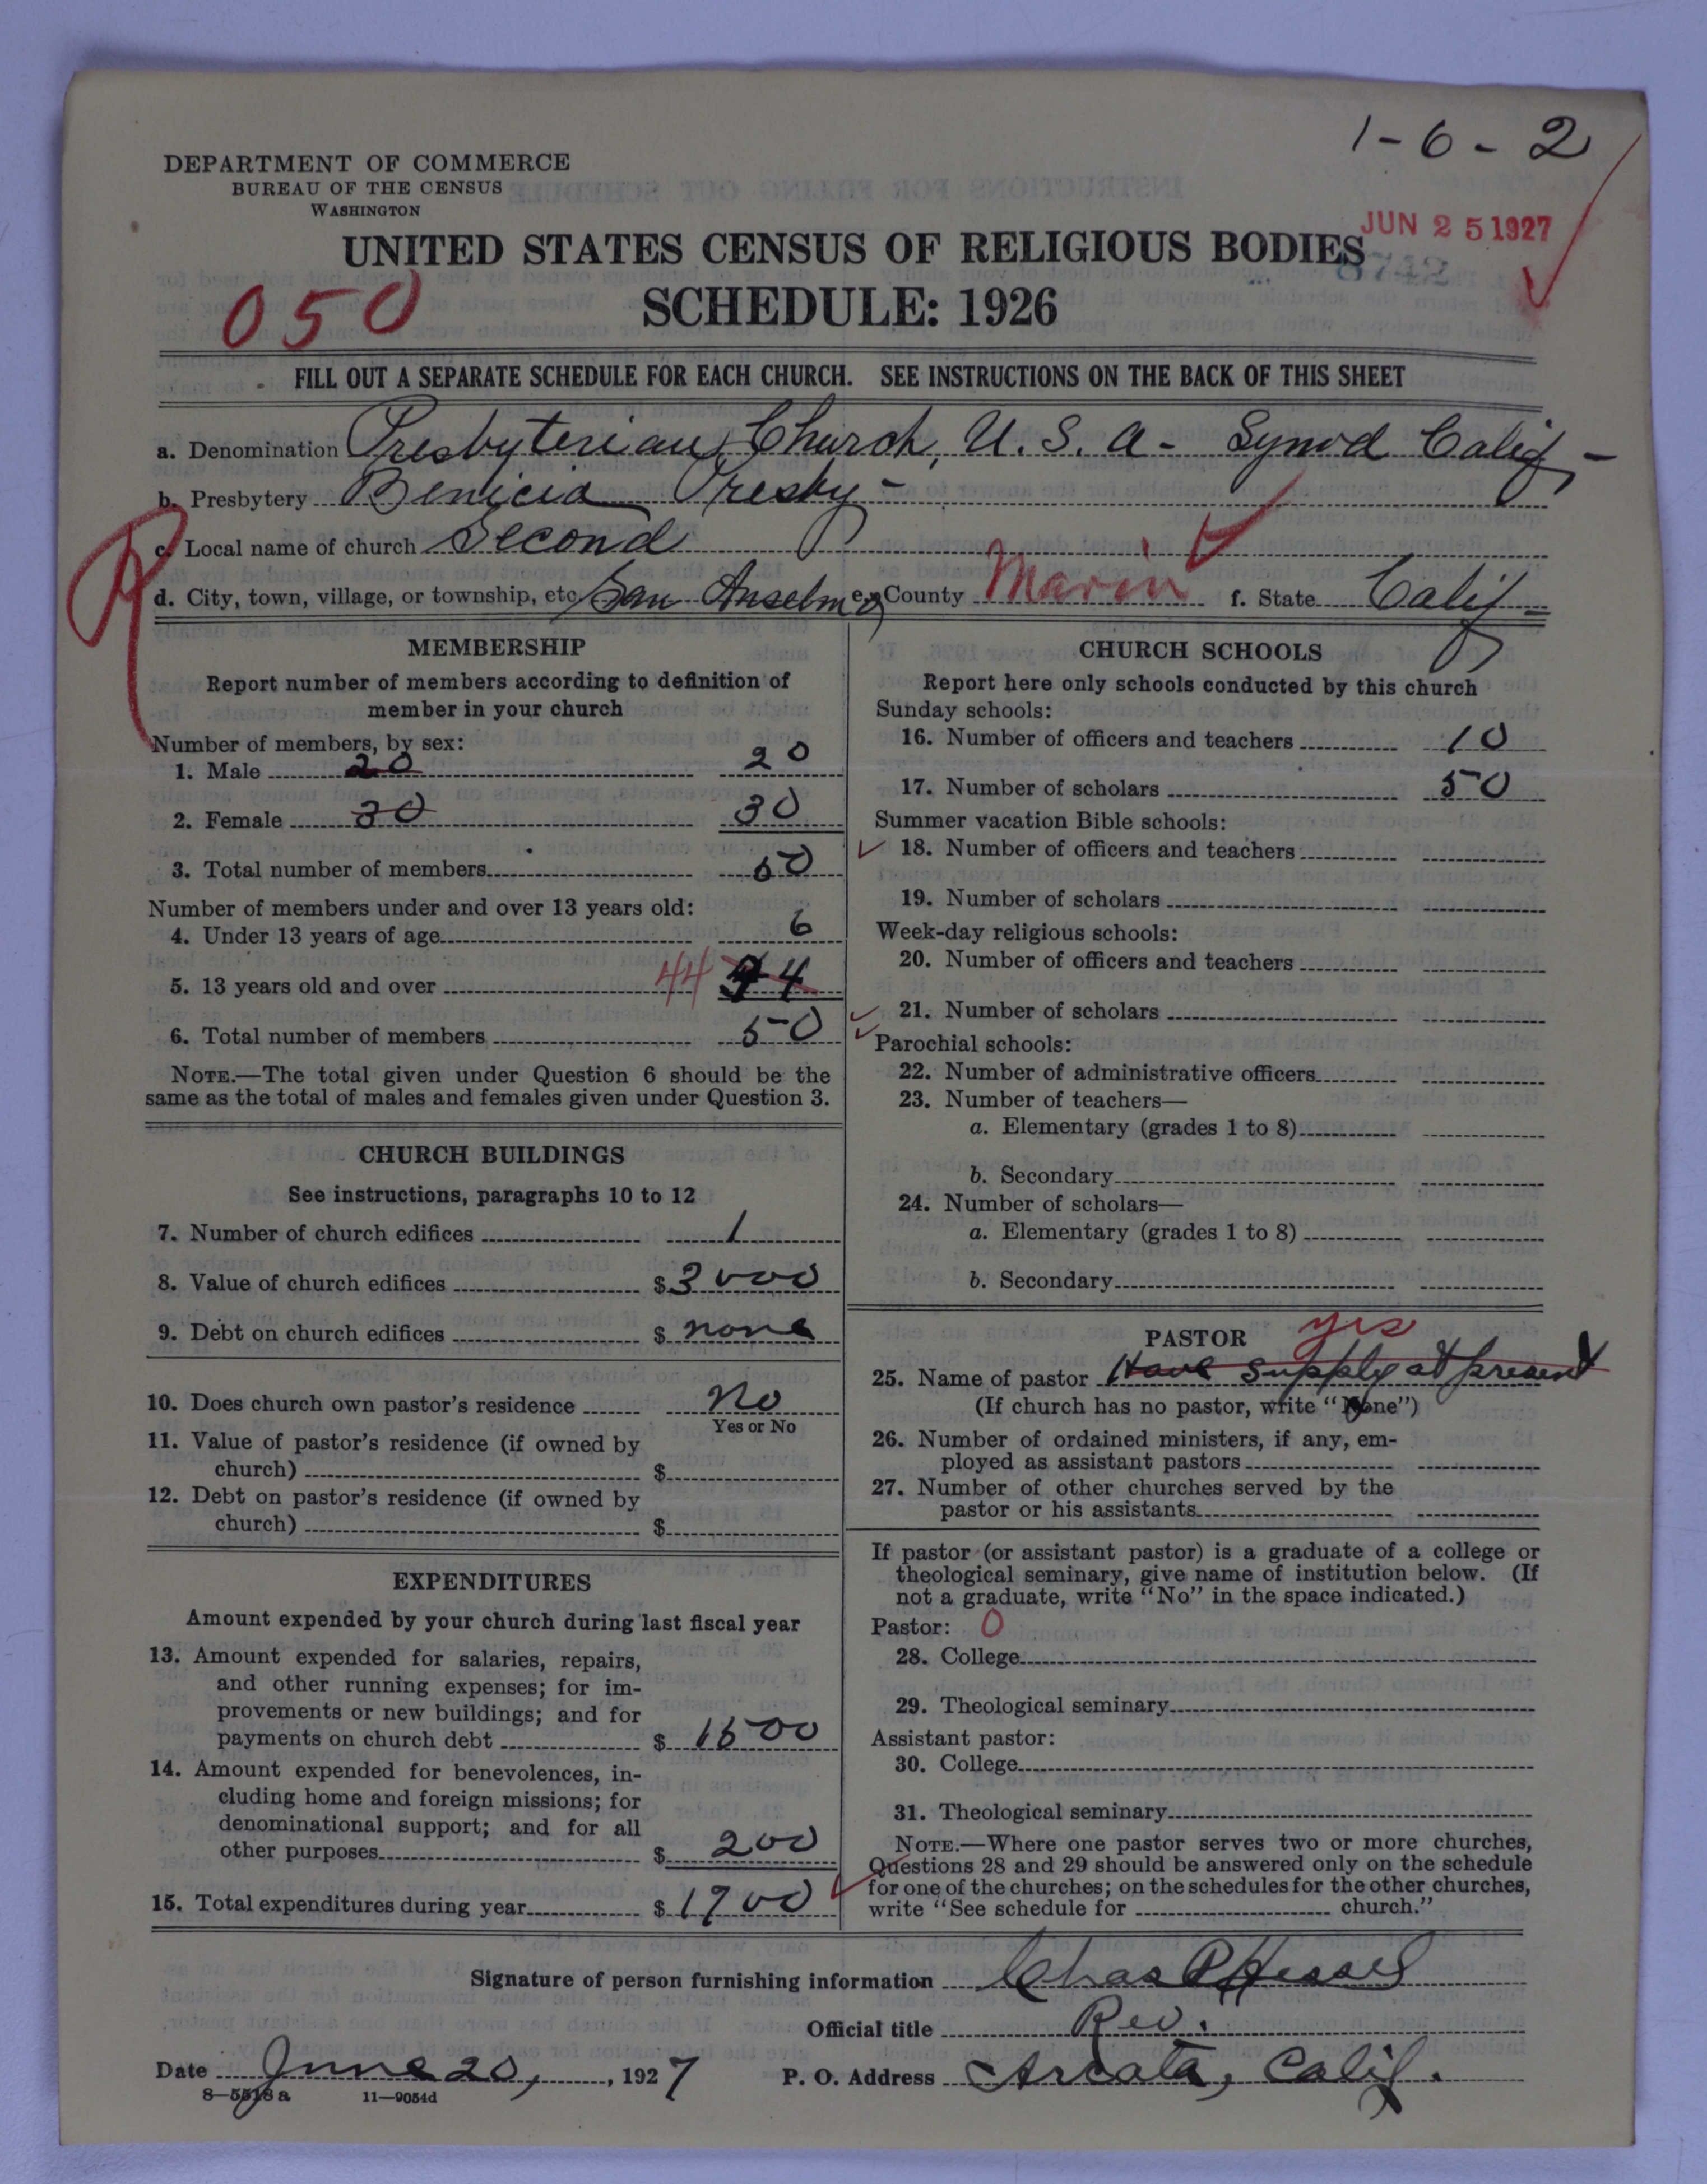 1-6-2
DEPARTMENT OF COMMERCE
BUREAU OF THE CENSUS
WASHINGTON
JUN 25 1927
UNITED STATES CENSUS OF RELIGIOUS BODIES
8742
050
SCHEDULE: 1926
FILL OUT A SEPARATE SCHEDULE FOR EACH CHURCH. SEE INSTRUCTIONS ON THE BACK OF THIS SHEET
a. Denomination Presbyterian Church, U. S. A - Synod Calif -
b. Presbytery Benicia Presby -
c. Local name of church Second
d. City, town, village, or township, etc. San Anselmo e. County Marin f. State Calif
MEMBERSHIP
Report number of members according to definition of
member in your church
Number of members, by sex:
1. Male 20 20
2. Female 30 30
3. Total number of members 50
Number of members under and over 13 years old:
4. Under 13 years of age 6
5. 13 years old and over 44 44
6. Total number of members 50
NOTE.—The total given under Question 6 should be the
same as the total of males and females given under Question 3.
CHURCH BUILDINGS
See instructions, paragraphs 10 to 12
7. Number of church edifices 1
8. Value of church edifices $ 3000
9. Debt on church edifices $ none
10. Does church own pastor's residence No
Yes or No
11. Value of pastor's residence (if owned by
church) $
12. Debt on pastor's residence (if owned by
church) $
EXPENDITURES
Amount expended by your church during last fiscal year
13. Amount expended for salaries, repairs,
and other running expenses; for im-
provements or new buildings; and for
payments on church debt $ 1500
14. Amount expended for benevolences, in-
cluding home and foreign missions; for
denominational support; and for all
other purposes $ 200
15. Total expenditures during year $ 1700
CHURCH SCHOOLS
Report here only schools conducted by this church
Sunday schools:
16. Number of officers and teachers 10
17. Number of scholars 50
Summer vacation Bible schools:
18. Number of officers and teachers
19. Number of scholars
Week-day religious schools:
20. Number of officers and teachers
21. Number of scholars
Parochial schools:
22. Number of administrative officers
23. Number of teachers—
a. Elementary (grades 1 to 8)
b. Secondary
24. Number of scholars—
a. Elementary (grades 1 to 8)
b. Secondary
PASTOR yes
25. Name of pastor Have supply at present
(If church has no pastor, write "None")
26. Number of ordained ministers, if any, em-
ployed as assistant pastors
27. Number of other churches served by the
pastor or his assistants
If pastor (or assistant pastor) is a graduate of a college or
theological seminary, give name of institution below. (If
not a graduate, write "No" in the space indicated.)
Pastor: 0
28. College
29. Theological seminary
Assistant pastor:
30. College
31. Theological seminary
NOTE.—Where one pastor serves two or more churches,
Questions 28 and 29 should be answered only on the schedule
for one of the churches; on the schedules for the other churches,
write "See schedule for church."
Signature of person furnishing information Chas P Hessel
Official title Rev.
Date June 20, 1927 P. O. Address Arcata, Calif.
8—5518a 11—9054d